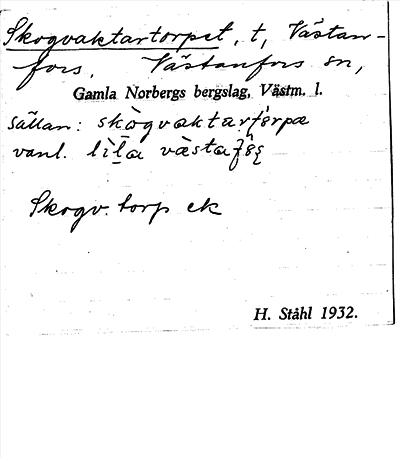 Skogvaktartorpet, t, Västan-
fors, Västanfors sn,
Gamla Norbergs bergslag, Västm. l.
sällan: skògvaktarfö̀rpæ
vanl. lìḷa væ̀sta
Skogv. torp ek
H. Ståhl 1932.